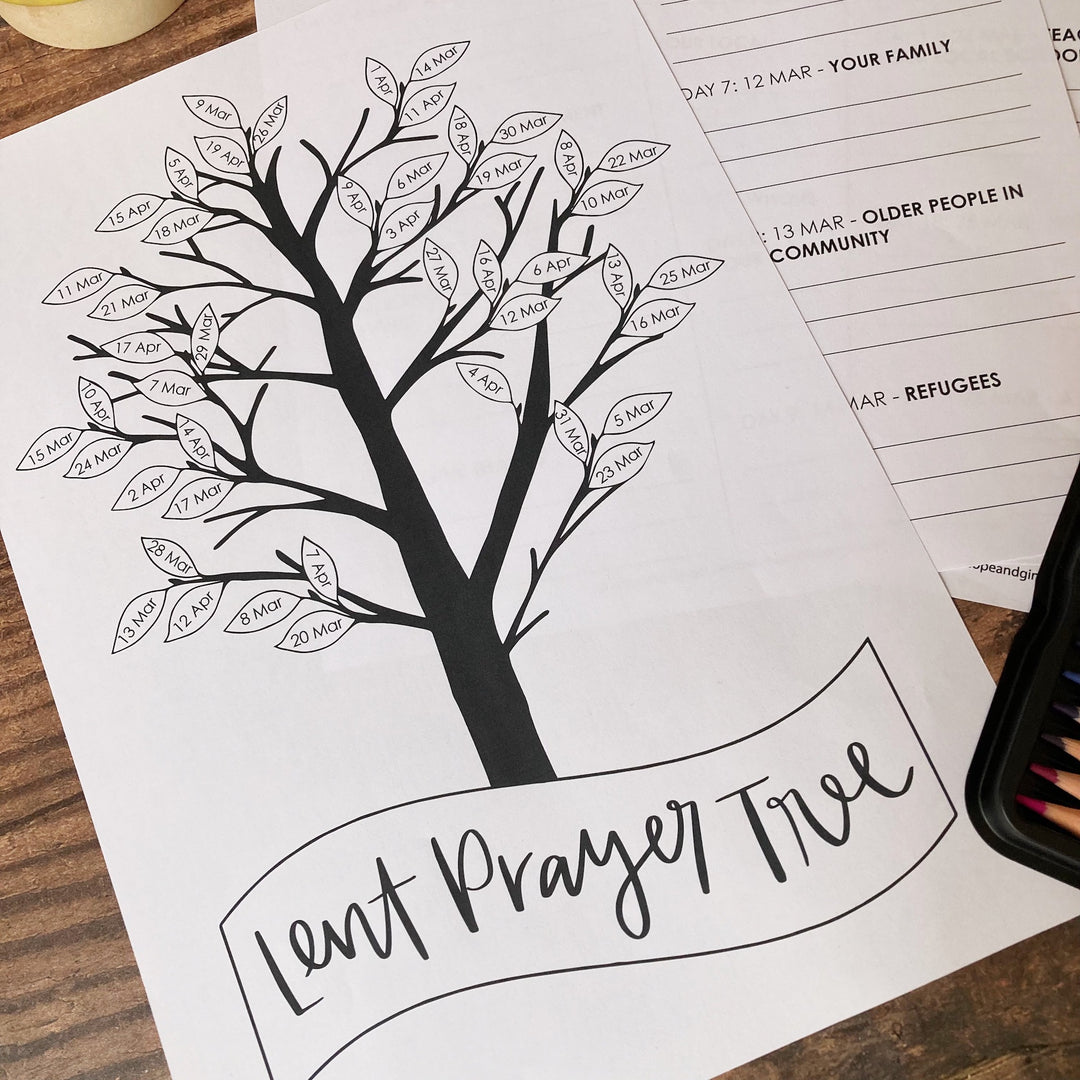 14 Mar
1 Apr
11 Apr
9 Mar
26 Mar
19 Apr
5 Apr
15 Apr
18 Mar
18 Apr
30 Mar
19 Mar
6 Mar
9 Apr
3 Apr
8 Apr
22 Mar
10 Mar
11 Mar
21 Mar
27 Mar
16 Apr
6 Apr
12 Mar
13 Apr
25 Mar
16 Mar
17 Apr
29 Mar
7 Mar
4 Apr
10 Apr
15 Mar
24 Mar
14 Apr
2 Apr
17 Mar
31 Mar
5 Mar
23 Mar
28 Mar
13 Mar
12 Apr
7 Apr
8 Mar
20 Mar
Lent Prayer Tree
DAY 7: 12 MAR - YOUR FAMILY
: 13 MAR - OLDER PEOPLE IN
COMMUNITY
MAR - REFUGEES